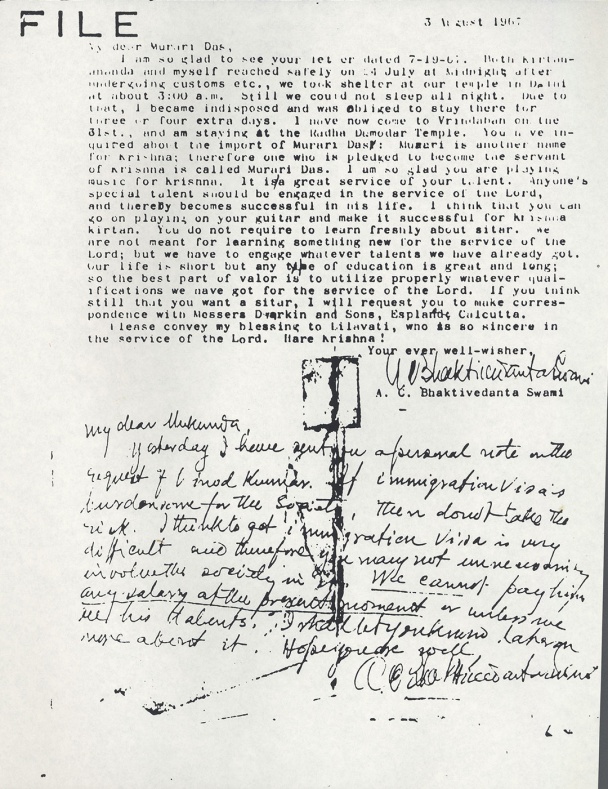 FILE
3 August 1967
My dear Murari Das,
I am so glad to see your letter dated 7-19-67. Both Kirtan-
ananda and myself reached safely on 24 July at Midnight after
undergoing customs etc., we took shelter at our temple in Delhi
at about 3:00 a.m. Still we could not sleep all night. Due to
that, I became indisposed and was obliged to stay there for
three or four extra days. I have now come to Vrindaban on the
31st., and am staying at the Radha Damodar Temple. You have in-
quired about the import of Murari Das: Murari is another name
for Krishna; therefore one who is pledged to become the servant
of Krishna is called Murari Das. I am so glad you are playing
music for Krishna. It is a great service of your talent. Anyone's
special talent should be engaged in the service of the Lord,
and thereby becomes successful in his life. I think that you can
go on playing on your guitar and make it successful for Krishna
kirtan. You do not require to learn freshly about sitar. We
are not meant for learning something new for the service of the
Lord; but we have to engage whatever talents we have already got.
Our life is short but any type of education is great and long;
so the best part of valor is to utilize properly whatever qual-
ifications we have got for the service of the Lord. If you think
still that you want a sitar, I will request you to make corres-
pondence with Messers Dwarkin and Sons, Esplande Calcutta.
Please convey my blessing to Lilavati, who is so sincere in
the service of the Lord. Hare Krishna!
Your ever well-wisher,
A. C. Bhaktivedanta Swami
A. C. Bhaktivedanta Swami
My dear Mukunda,
Yesterday I have sent you a personal note on the
request of Vinod Kumar. If immigration Visa is
burdensome for the Society, then don't take the
risk. I think to get immigration Visa is very
difficult and therefore you may not unnecessarily
involve the society in it. We cannot pay him
any salary at the present moment or unless we
see his talents. I shall let you know later on
more about it. Hope you are well
A. C. Bhaktivedanta Swami